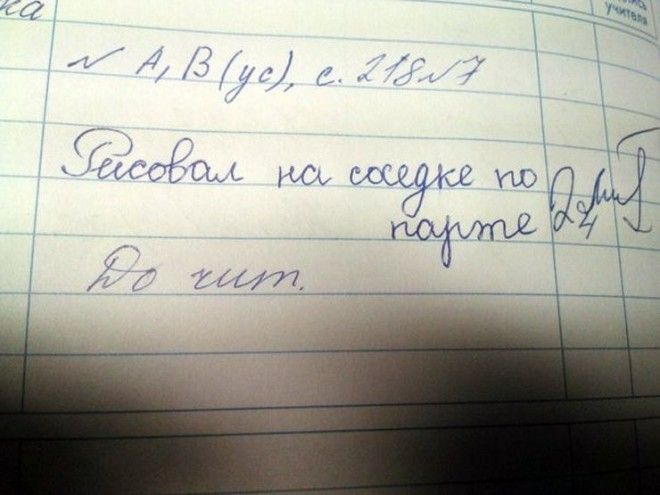 ка
учителя
№ А, В (ус), с. 218 №7
Рисовал на соседке по
парте
До чит.